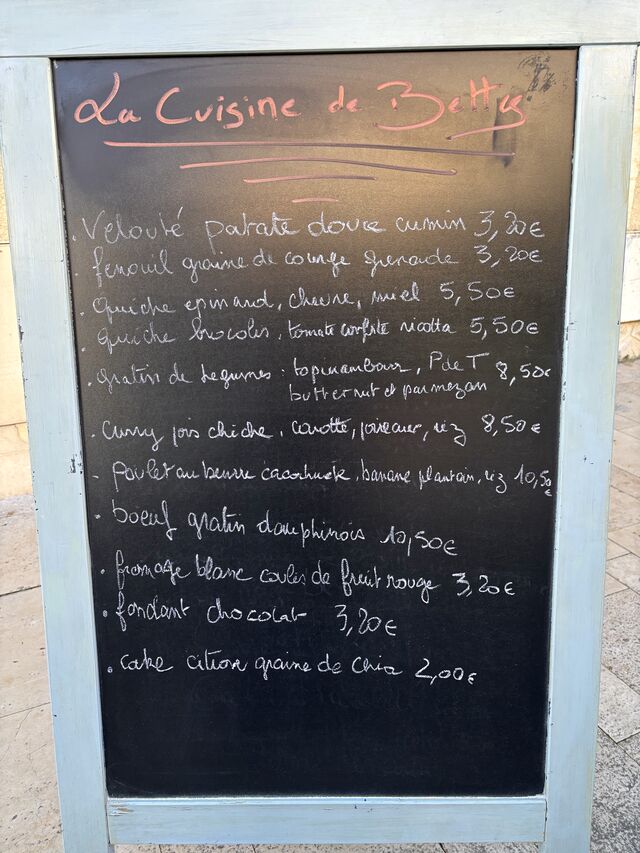 La Cuisine de Bettys
. Velouté patate douce cumin 3,20€
. fenouil graine de courge grenade 3,20€
. quiche epinard, chevre, miel 5,50€
. quiche brocolis, tomate confite ricotta 5,50€
. gratin de legumes : topinambour, P de T 8,50€
butternut et parmezan
. curry pois chiche, carotte, poireaux, riz 8,50€
. Poulet au beurre cacahuete, banane plantain, riz 10,50
. boeuf gratin dauphinois 10,50€
. fromage blanc coulis de fruit rouge 3,20€
. fondant chocolat 3,20€
. cake citron graine de chia 2,00€